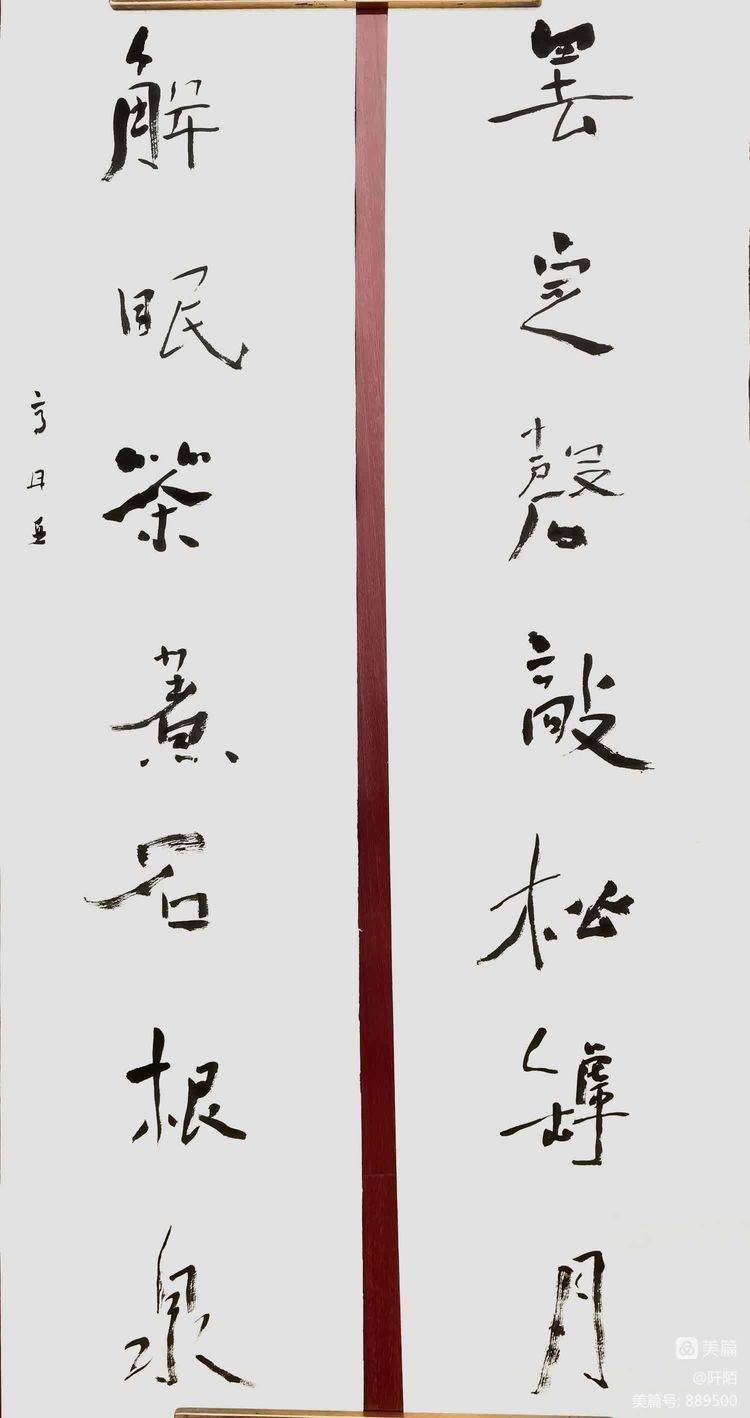 罢定磬敲松罅月
解眠茶煮石根泉
美篇
@阡陌
美篇号: 889500